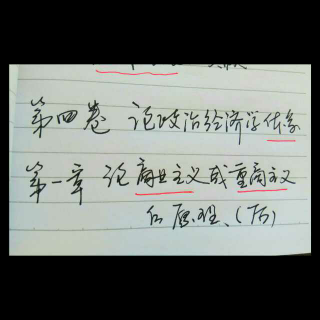 第四卷 论政治经济学体系
第一章 论商业主义或重商主义
的原理、(下)